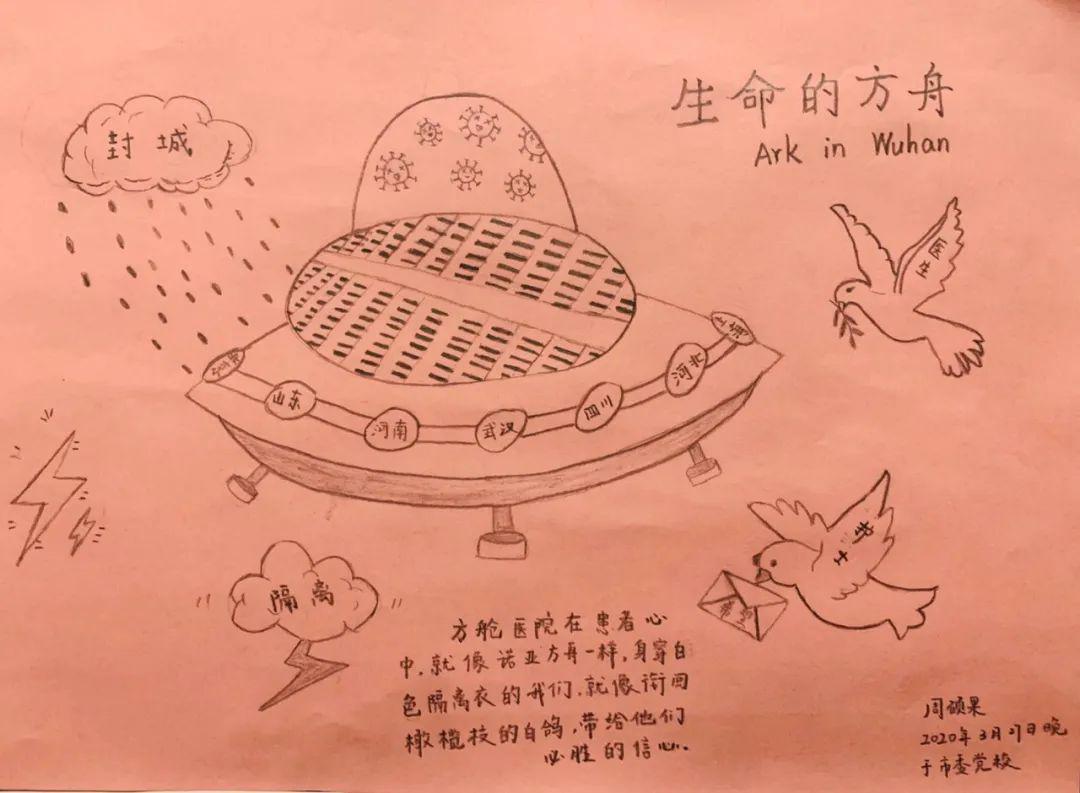 生命的方舟
Ark in Wuhan
封城
医生
山东
河南
武汉
四川
河北
护士
希望
隔离
方舱医院在患者心
中,就像诺亚方舟一样,身穿白
色隔离衣的我们,就像衔回
橄榄枝的白鸽,带给他们
必胜的信心.
周硕果
2020年3月27日晚
于市委党校